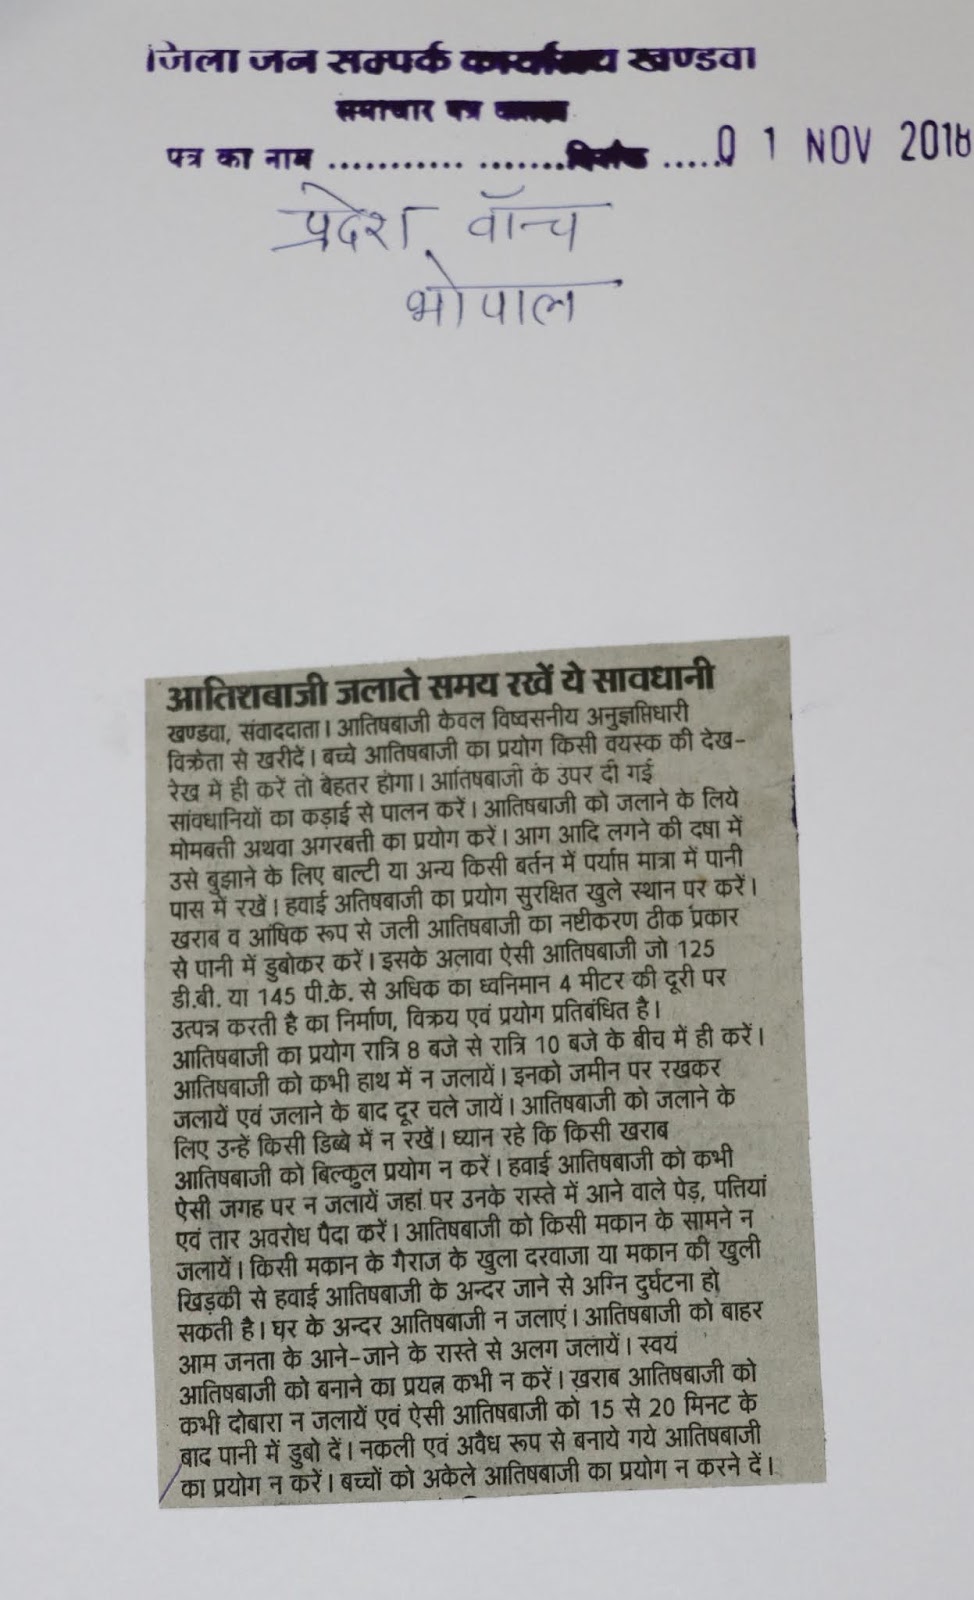 जिला जन सम्पर्क कार्यालय खण्डवा
समाचार पत्र
पत्र का नाम ........... .......दिनांक ..... 01 NOV 2018
प्रदेश वॉच
भोपाल
आतिशबाजी जलाते समय रखें ये सावधानी
खण्डवा, संवाददाता। आतिषबाजी केवल विष्वसनीय अनुज्ञप्तिधारी
विक्रेता से खरीदें। बच्चे आतिषबाजी का प्रयोग किसी वयस्क की देख-
रेख में ही करें तो बेहतर होगा। आतिषबाजी के उपर दी गई
सांवधानियों का कड़ाई से पालन करें। आतिषबाजी को जलाने के लिये
मोमबत्ती अथवा अगरबत्ती का प्रयोग करें। आग आदि लगने की दषा में
उसे बुझाने के लिए बाल्टी या अन्य किसी बर्तन में पर्याप्त मात्रा में पानी
पास में रखें। हवाई अतिषबाजी का प्रयोग सुरक्षित खुले स्थान पर करें।
खराब व आंषिक रूप से जली आतिषबाजी का नष्टीकरण ठीक प्रकार
से पानी में डुबोकर करें। इसके अलावा ऐसी आतिषबाजी जो 125
डी.बी. या 145 पी.के. से अधिक का ध्वनिमान 4 मीटर की दूरी पर
उत्पन्न करती है का निर्माण, विक्रय एवं प्रयोग प्रतिबंधित है।
आतिषबाजी का प्रयोग रात्रि 8 बजे से रात्रि 10 बजे के बीच में ही करें।
आतिषबाजी को कभी हाथ में न जलायें। इनको जमीन पर रखकर
जलायें एवं जलाने के बाद दूर चले जायें। आतिषबाजी को जलाने के
लिए उन्हें किसी डिब्बे में न रखें। ध्यान रहे कि किसी खराब
आतिषबाजी को बिल्कुल प्रयोग न करें। हवाई आतिषबाजी को कभी
ऐसी जगह पर न जलायें जहां पर उनके रास्ते में आने वाले पेड़, पत्तियां
एवं तार अवरोध पैदा करें। आतिषबाजी को किसी मकान के सामने न
जलायें। किसी मकान के गैराज के खुला दरवाजा या मकान की खुली
खिड़की से हवाई आतिषबाजी के अन्दर जाने से अग्नि दुर्घटना हो
सकती है। घर के अन्दर आतिषबाजी न जलाएं। आतिषबाजी को बाहर
आम जनता के आने-जाने के रास्ते से अलग जलायें। स्वयं
आतिषबाजी को बनाने का प्रयत्न कभी न करें। ख़राब आतिषबाजी को
कभी दोबारा न जलायें एवं ऐसी आतिषबाजी को 15 से 20 मिनट के
बाद पानी में डुबो दें। नकली एवं अवैध रूप से बनाये गये आतिषबाजी
का प्रयोग न करें। बच्चों को अकेले आतिषबाजी का प्रयोग न करने दें।